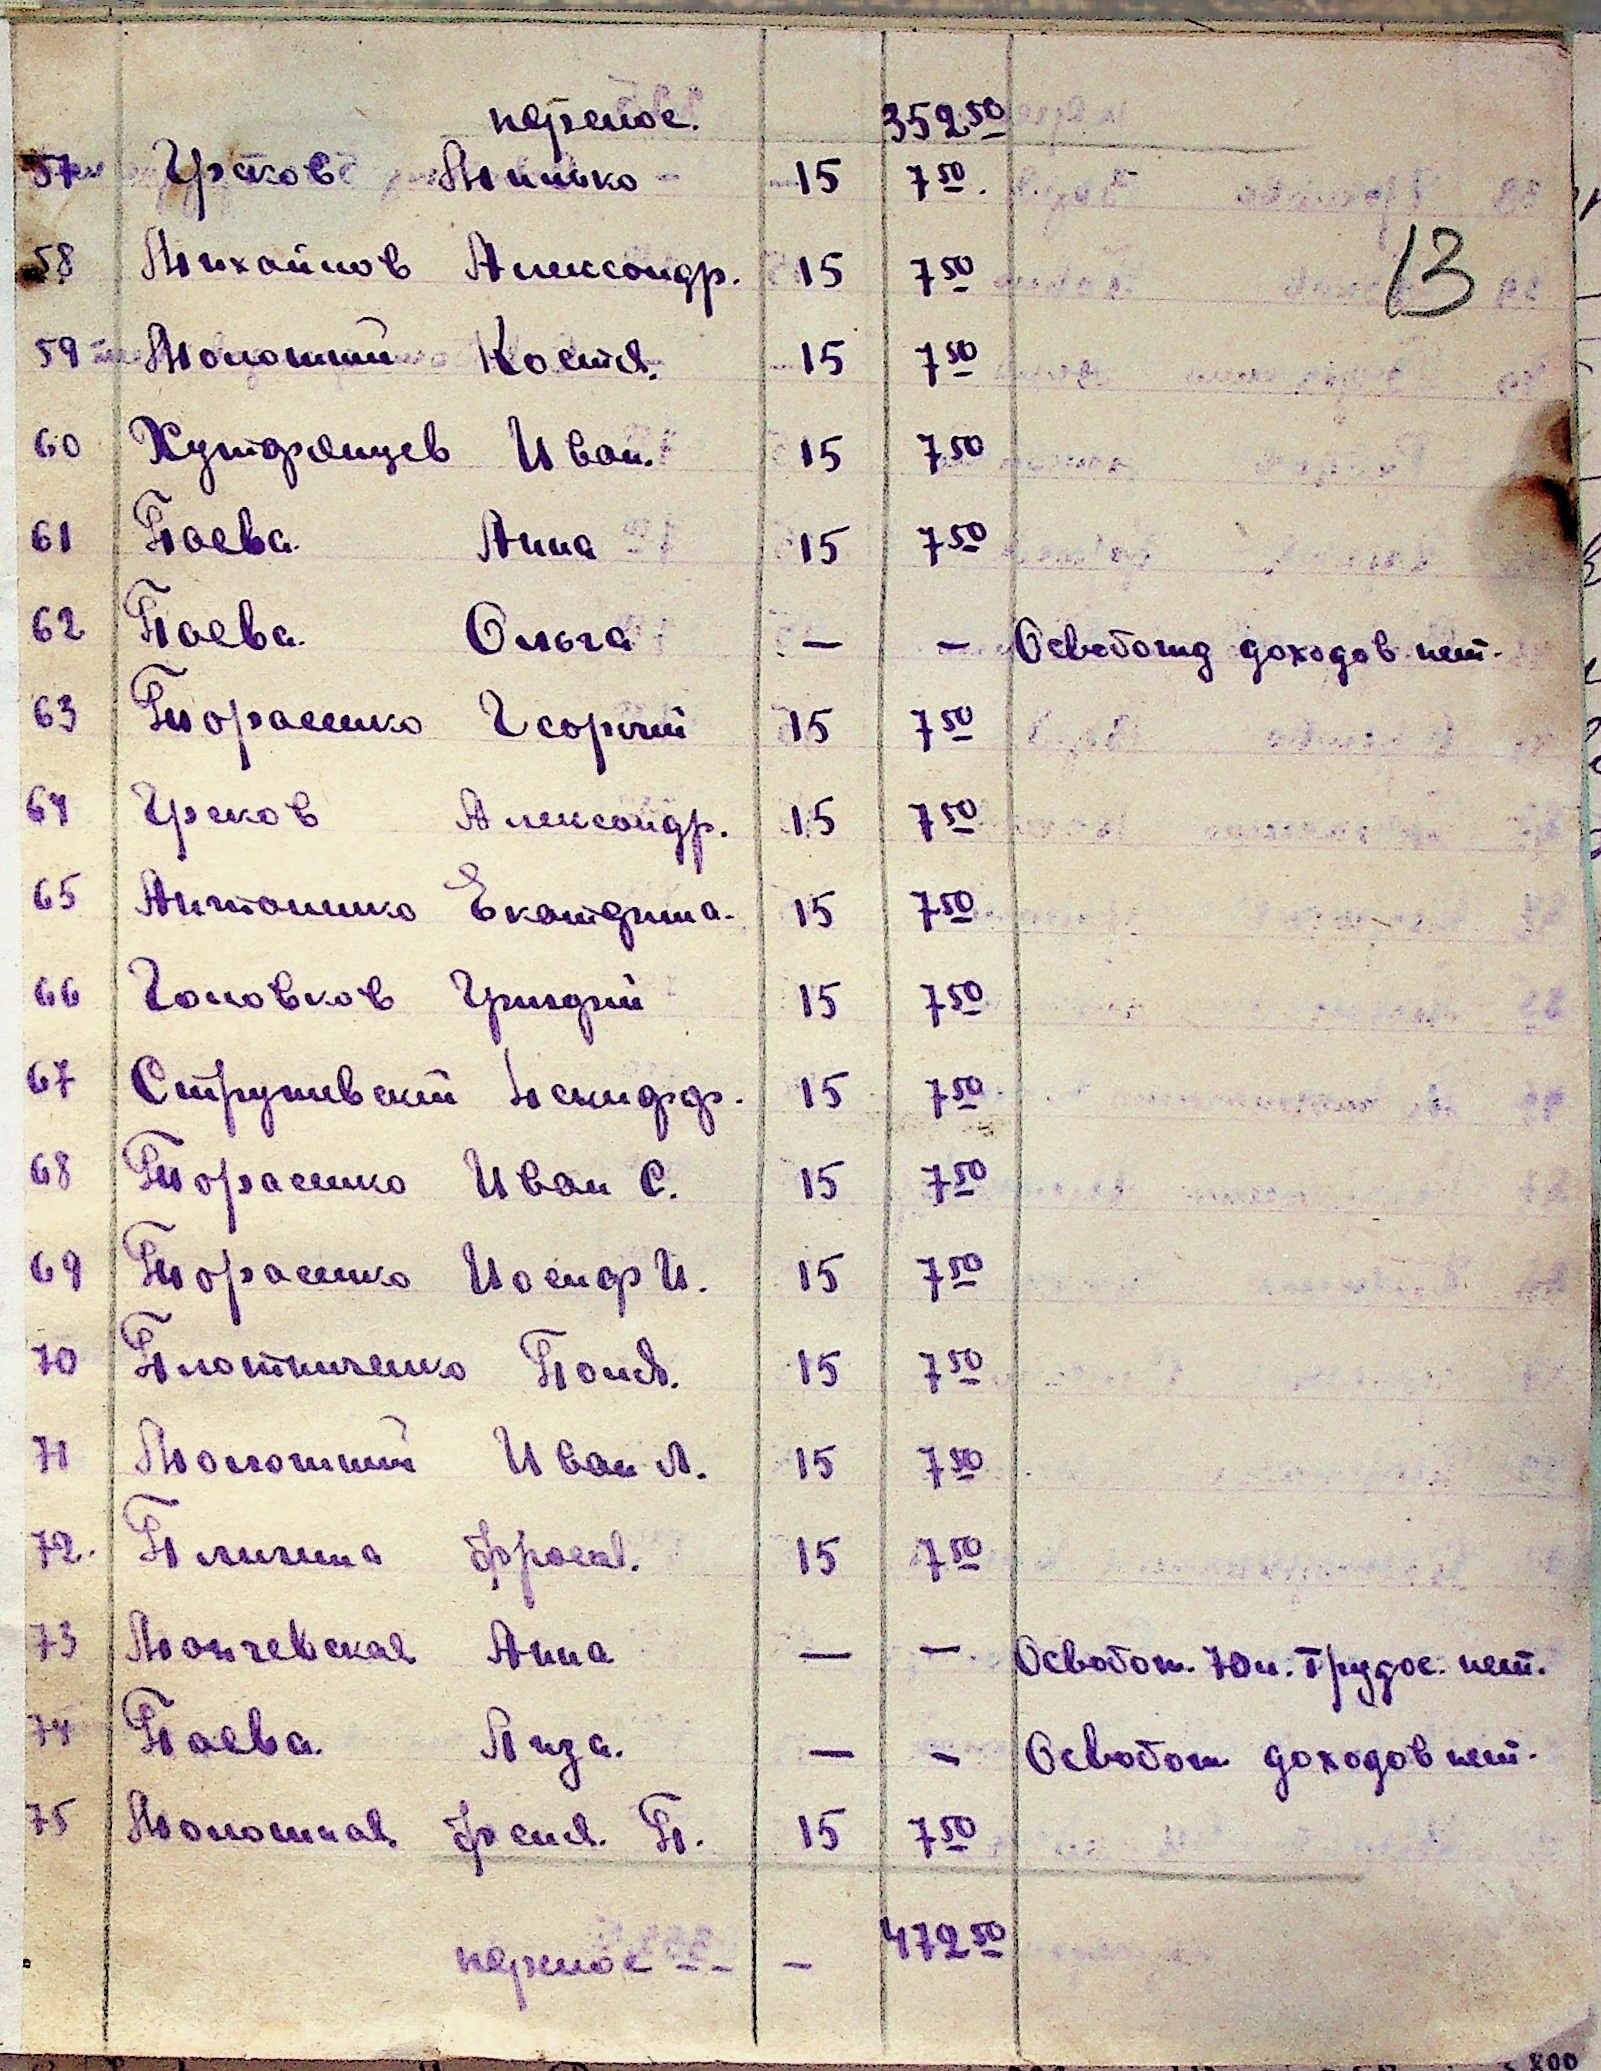 перенос. 352 50
57 Греков Минько - 15 7 50.
58 Михайлов Александр. 15 7 50
13
59 Молотий Костя. 15 7 50
60 Хуторянцев Иван. 15 7 50
61 Паева. Анна 15 7 50
62 Паева. Ольга — — Освобожд доходов нет.
63 Тарасенко Георгий 15 7 50
64 Греков Александр. 15 7 50
65 Антоненко Екатерина. 15 7 50
66 Головков Григорий 15 7 50
67 15 7 50
68 Тарасенко Иван С. 15 7 50
69 Тарасенко Иосиф И. 15 7 50
70 Плотниченко Паня. 15 7 50
71 Молотий Иван Л. 15 7 50
72. 15 7 50
73 Анна — — Освобож. нет.
74 Паева. Лиза. — — Освобож доходов нет.
75 П. 15 7 50
перенос - 472 50